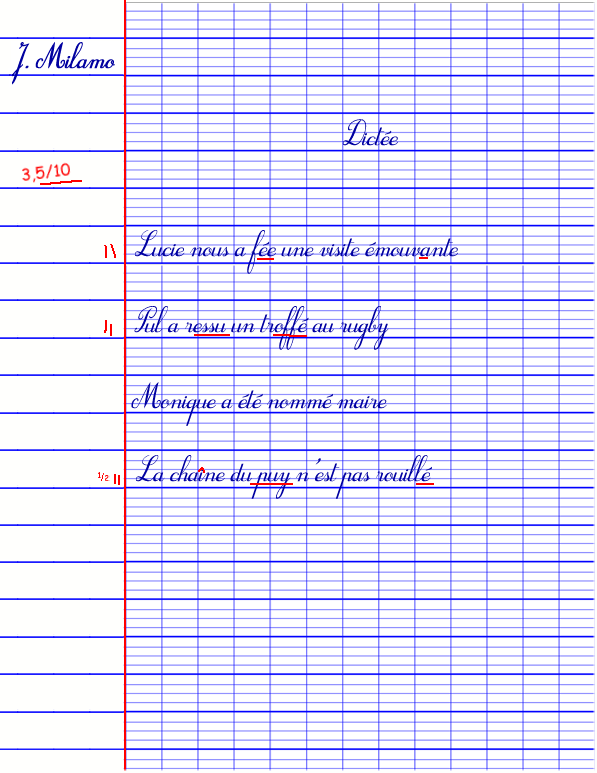 J. Milamo
Dictée
3,5/10
Lucie nous a fée une visite émouvante
Pul a ressu un troffé au rugby
Monique a été nommé maire
1/2
La chaîne du puy n'est pas rouillé